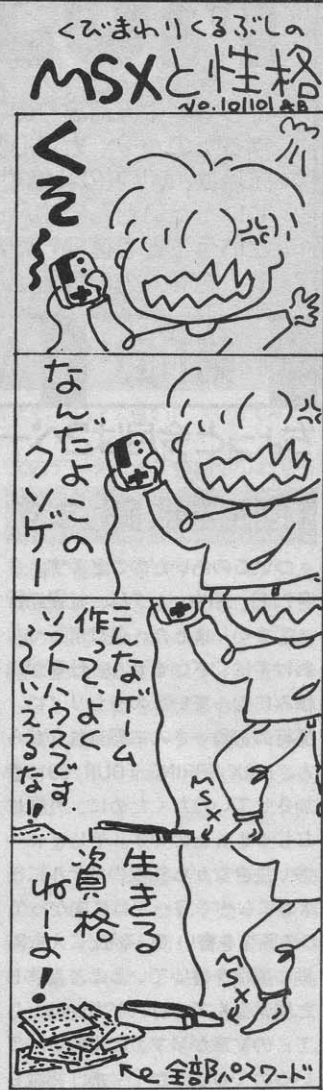 くびまわりくるぶしの
MSXと性格
No.10/101 AB
くそ〜
なんだよこの
クソゲー
こんなゲーム
作ってよ
ソフトハウスです
っていえるな!
MSX
生きる
資格
ねーよ!
MSX
全部パスワード